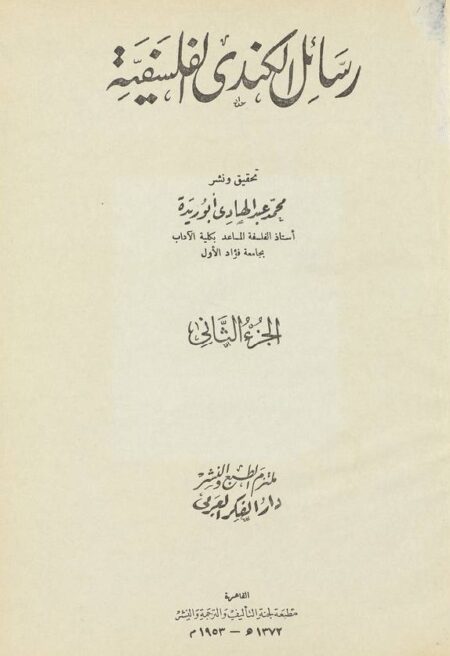 رسائل الكندى الفلسفية
تحقيق ونشر
محمد عبد الهادى أبو ريدة
أستاذ الفلسفة المساعد بكلية الآداب
بجامعة فؤاد الأول
الجزءُ الثَّانِي
ملتزم الطبع والنشر
دار الفكر العربى
القاهرة
مطبعة لجنة التأليف والترجمة والنشر
١٣٧٢ هـ — ١٩٥٣ م